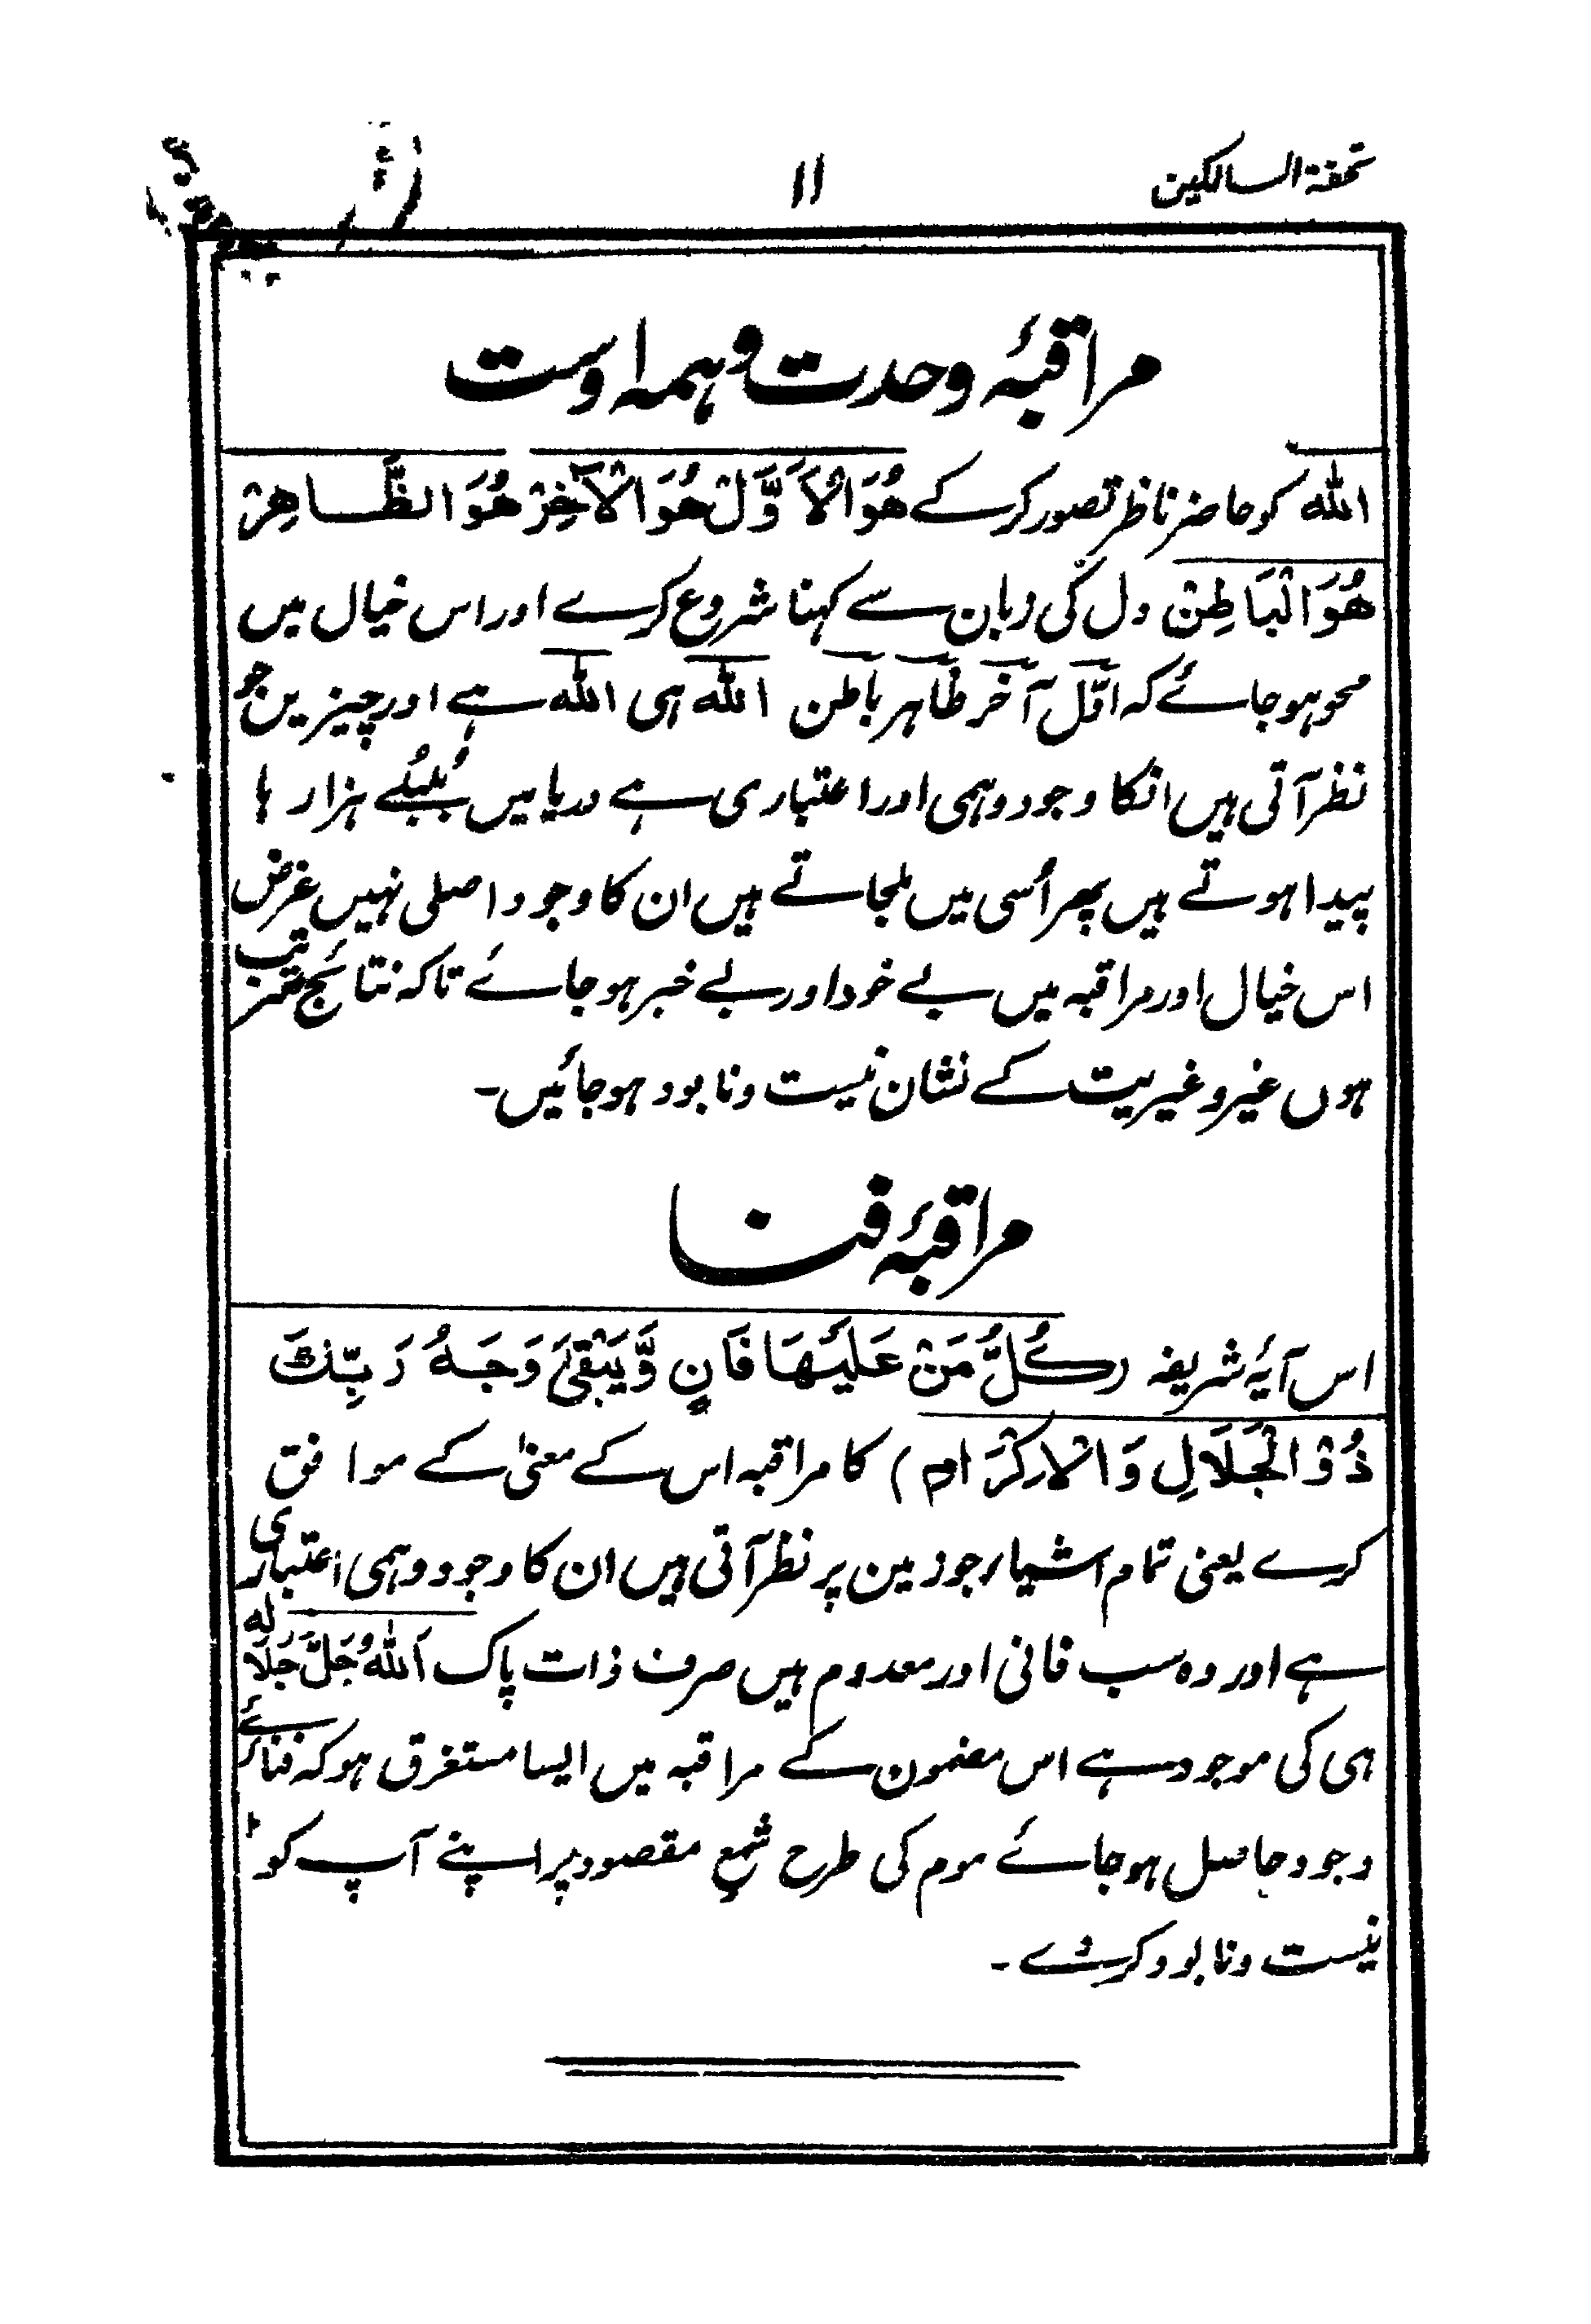 تحفۃ السالکین
۱۱
مراقبۂ وحدت وہمہ اوست
اللہ کو حاضر ناظر تصور کرکے هُوَ الْاَوَّلْ هُوَ الْآخِرْ هُوَ الظَّاهِرْ
هُوَ الْبَاطِنْ دل کی زبان سے کہنا شروع کرے اور اس خیال میں
محو ہوجائے کہ اوّل آخر ظاہر باطن اللہ ہی اللہ ہے اور چیزیں جو
نظر آتی ہیں انکا وجود وہمی اور اعتباری ہے دریا میں بُلبُلے ہزار ہا
پیدا ہوتے ہیں پھر اُسی میں ملجاتے ہیں ان کا وجود اصلی نہیں غرض
اس خیال اور مراقبہ میں بے خود اور بے خبر ہوجائے تاکہ نتائج مترتب
ہوں غیر و غیریت کے نشان نیست ونابود ہوجائیں۔
مراقبۂ فنا
اس آیۂ شریفہ (كُلُّ مَنْ عَلَيْهَا فَانٍ وَّيَبْقىٰ وَجَهُ رَبِّكَ
ذُوْ الْجَلَالِ وَالْاِكْرَام) کا مراقبہ اس کے معنیٰ کے موافق
کرے یعنی تمام اشیاء جو زمین پر نظر آتی ہیں ان کا وجود وہمی اعتباری
ہے اور وہ سب فانی اور معدوم ہیں صرف ذات پاک اَللہُ جَلَّ جَلَالہ
ہی کی موجود ہے اس مضمون کے مراقبہ میں ایسا مستغرق ہو کہ فنائے
وجود حاصل ہوجائے موم کی طرح شمع مقصود پر اپنے آپ کو
نیست ونابود کردے۔